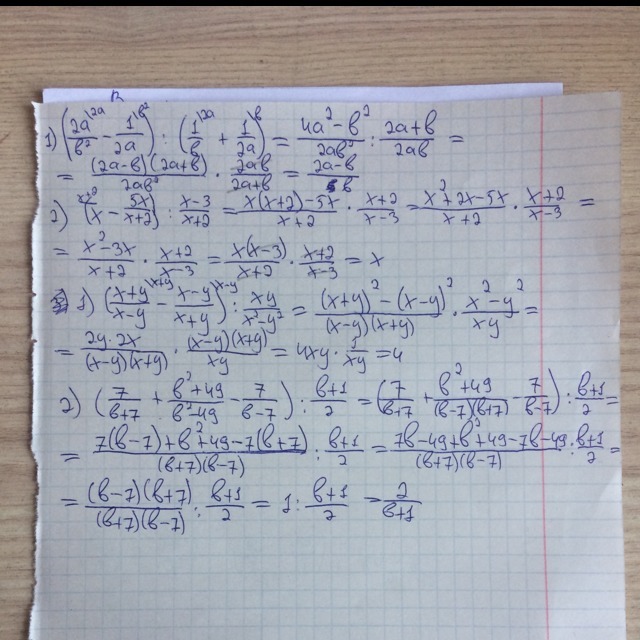 1) (2a/b² - 1/2a) : (1/b + 1/2a) = (4a² - b²)/2ab² : (2a+b)/2ab =
= (2a-b)(2a+b)/2ab² · 2ab/(2a+b) = (2a-b)/b
2) (x - 5x/(x+2)) : (x-3)/(x+2) = (x(x+2) - 5x)/(x+2) · (x+2)/(x-3) = (x²+2x-5x)/(x+2) · (x+2)/(x-3) =
= (x²-3x)/(x+2) · (x+2)/(x-3) = x(x-3)/(x+2) · (x+2)/(x-3) = x
1) ((x+y)/(x-y) - (x-y)/(x+y)) : xy/(x²-y²) = ((x+y)² - (x-y)²)/(x-y)(x+y) · (x²-y²)/xy =
= 2y·2x/(x-y)(x+y) · (x-y)(x+y)/xy = 4xy · 1/xy = 4
2) (7/(b+7) + (b²+49)/(b²-49) - 7/(b-7)) : (b+1)/2 = (7/(b+7) + (b²+49)/(b-7)(b+7) - 7/(b-7)) : (b+1)/2 =
= (7(b-7)+b²+49-7(b+7))/(b+7)(b-7) : (b+1)/2 = (7b-49+b²+49-7b-49)/(b+7)(b-7) : (b+1)/2 =
= (b-7)(b+7)/(b+7)(b-7) : (b+1)/2 = 1 : (b+1)/2 = 2/(b+1)